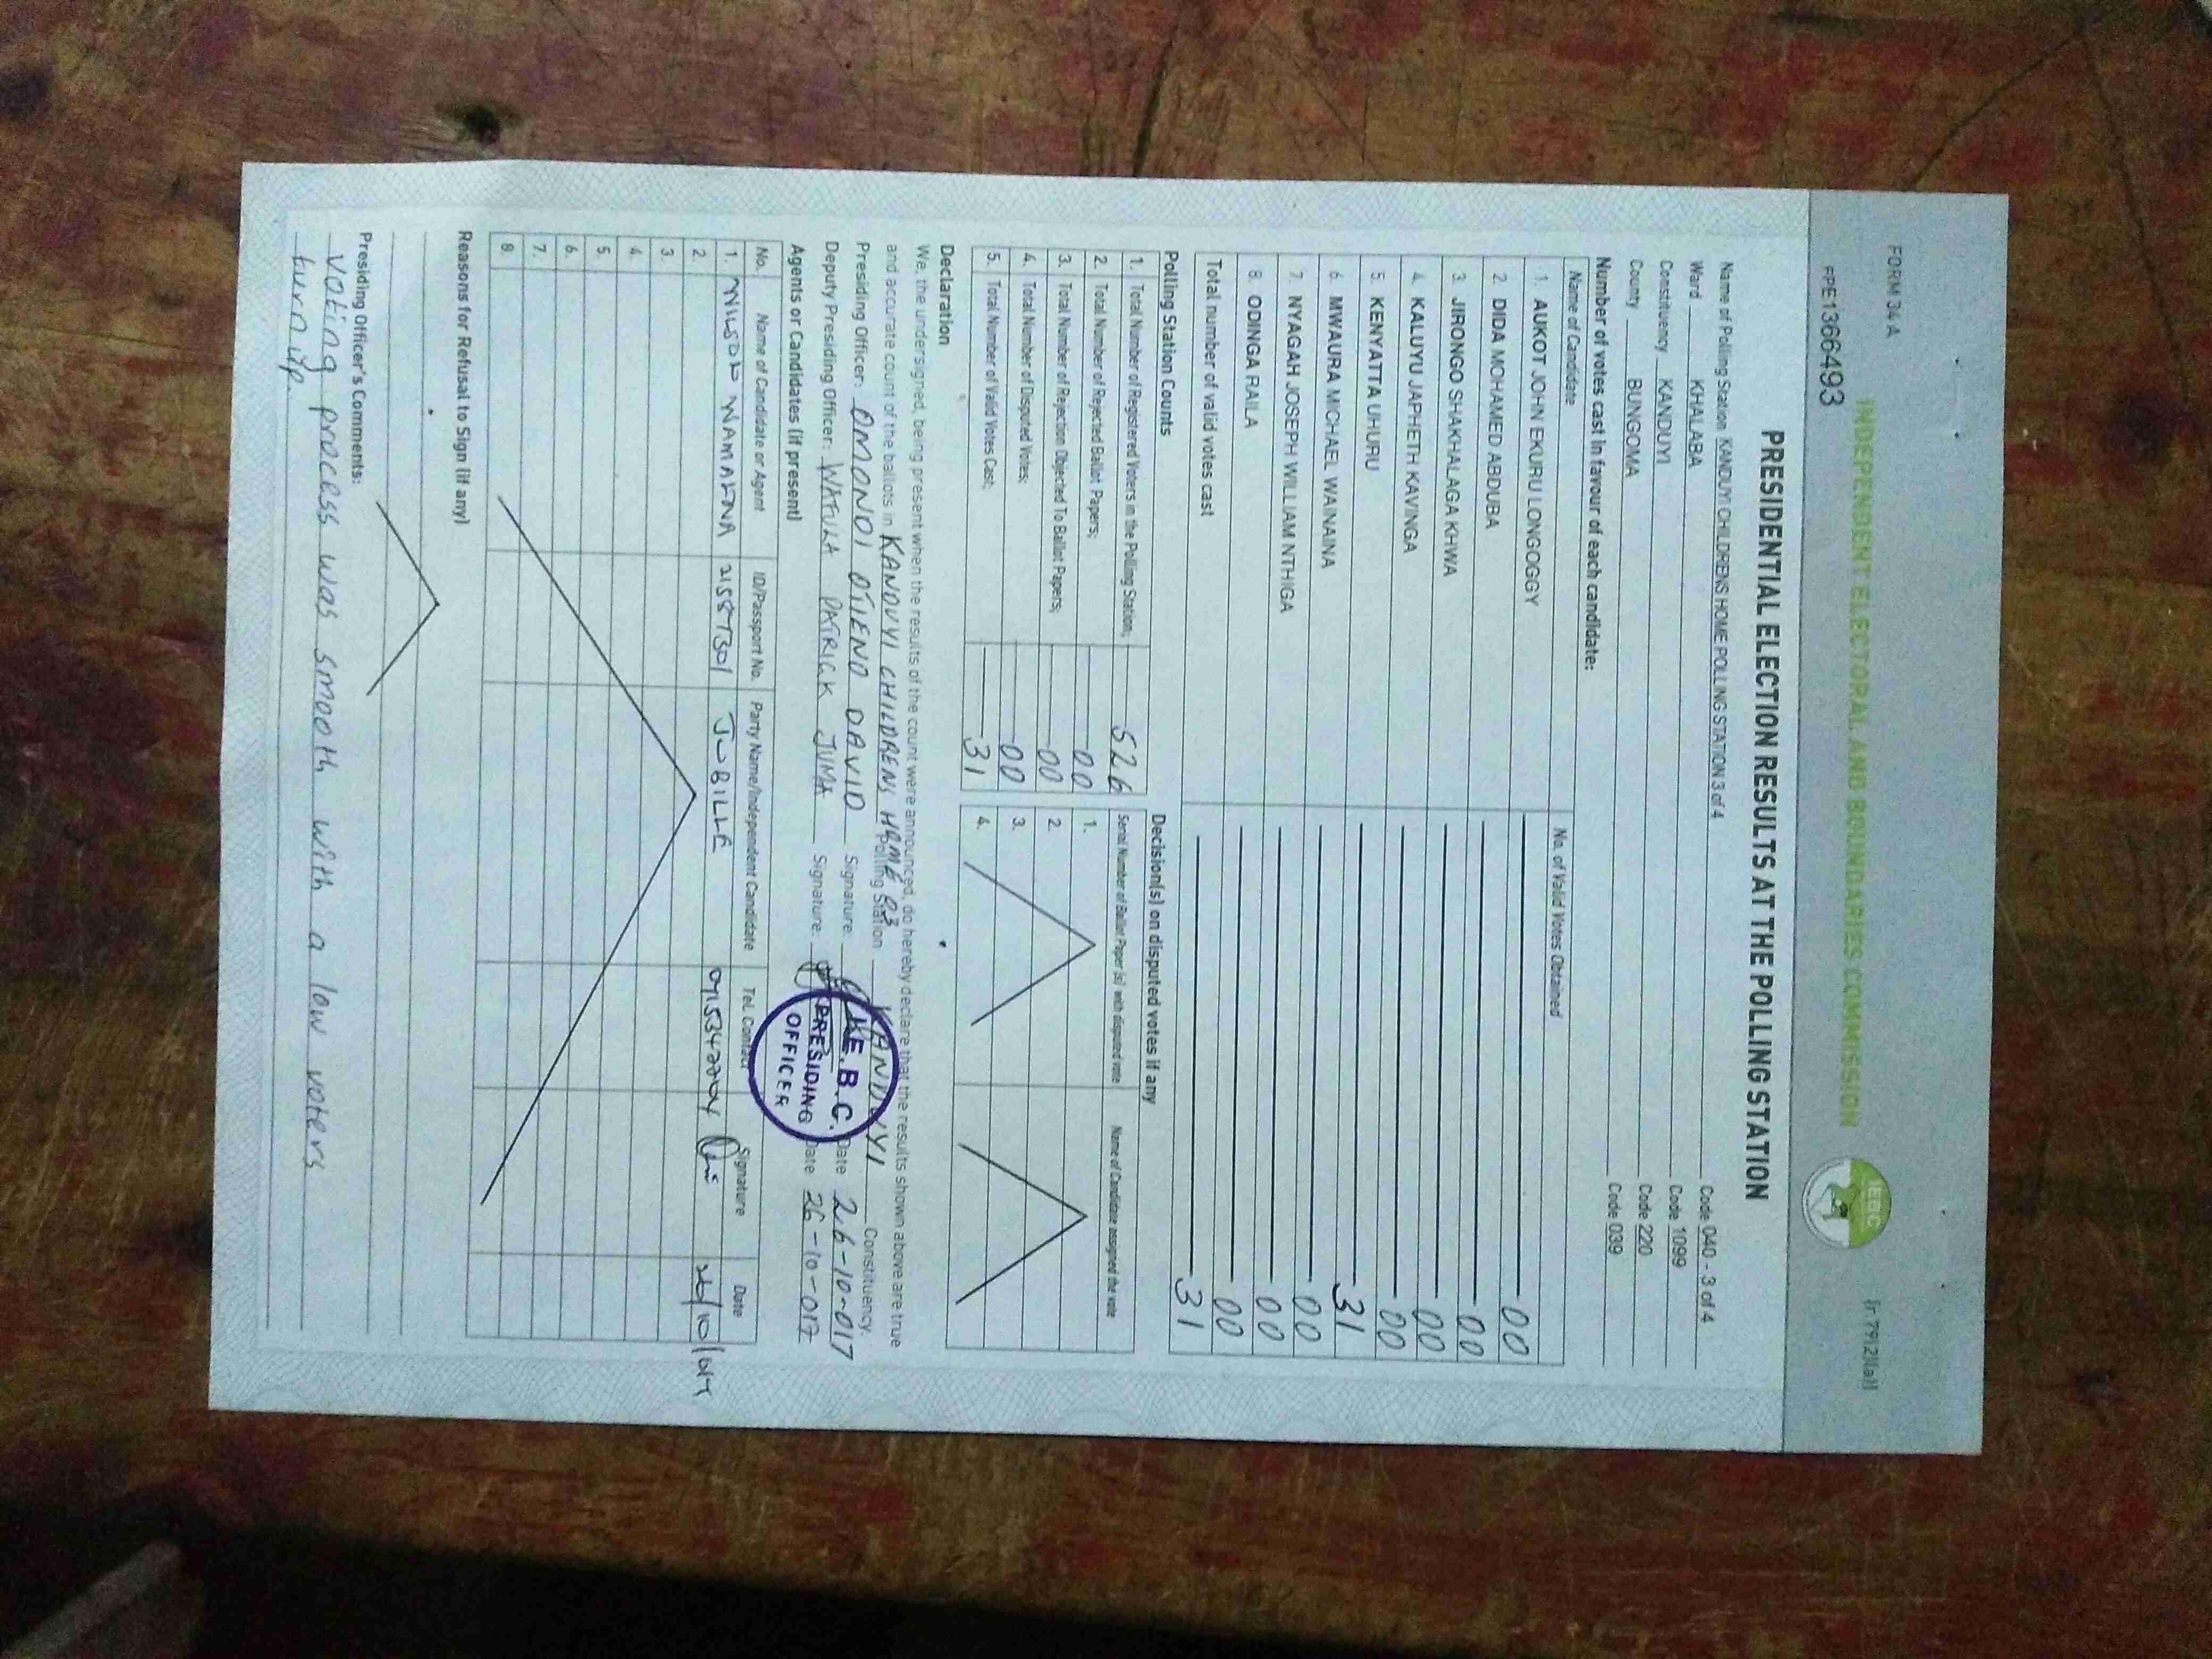 FORM 34 A
(r 79(2)(a))
INDEPENDENT ELECTORAL AND BOUNDARIES COMMISSION
IEBC
PPE1366493
PRESIDENTIAL ELECTION RESULTS AT THE POLLING STATION
Name of Polling Station KANDUYI CHILDRENS HOME POLLING STATION 3 of 4 Code 040 - 3 of 4
Ward KHALABA Code 1099
Constituency KANDUYI Code 220
County BUNGOMA Code 039
Number of votes cast in favour of each candidate:
Name of Candidate No. of Valid Votes Obtained
1. AUKOT JOHN EKURU LONGOGGY 00
2. DIDA MOHAMED ABDUBA 00
3. JIRONGO SHAKHALAGA KHWA 00
4. KALUYU JAPHETH KAVINGA 00
5. KENYATTA UHURU 31
6. MWAURA MICHAEL WAINAINA 00
7. NYAGAH JOSEPH WILLIAM NTHIGA 00
8. ODINGA RAILA 00
Total number of valid votes cast 31
Polling Station Counts
1. Total Number of Registered Voters in the Polling Station; 526
2. Total Number of Rejected Ballot Papers; 00
3. Total Number of Rejection Objected To Ballot Papers; 00
4. Total Number of Disputed Votes; 00
5. Total Number of Valid Votes Cast; 31
Decision(s) on disputed votes if any
Serial Number of Ballot Paper (s) with disputed vote Name of Candidate assigned the vote
1.
2.
3.
4.
Declaration
We, the undersigned, being present when the results of the count were announced, do hereby declare that the results shown above are true
and accurate count of the ballots in KANDUYI CHILDRENS HOME P3 Polling Station KANDUYI Constituency.
Presiding Officer: OMONDI OTIENO DAVID Signature: Date 26-10-017
Deputy Presiding Officer: WATULA PATRICK JUMA Signature: Date 26-10-017
I.E.B.C.
PRESIDING
OFFICER
Agents or Candidates (if present)
No. Name of Candidate or Agent ID/Passport No. Party Name/Independent Candidate Tel. Contact Signature Date
1. WILSON WAMALWA 21587301 JUBILLE 26/10/017
2.
3.
4.
5.
6.
7.
8.
Reasons for Refusal to Sign (if any)
Presiding Officer's Comments:
Voting process was smooth with a low voters
turn up.